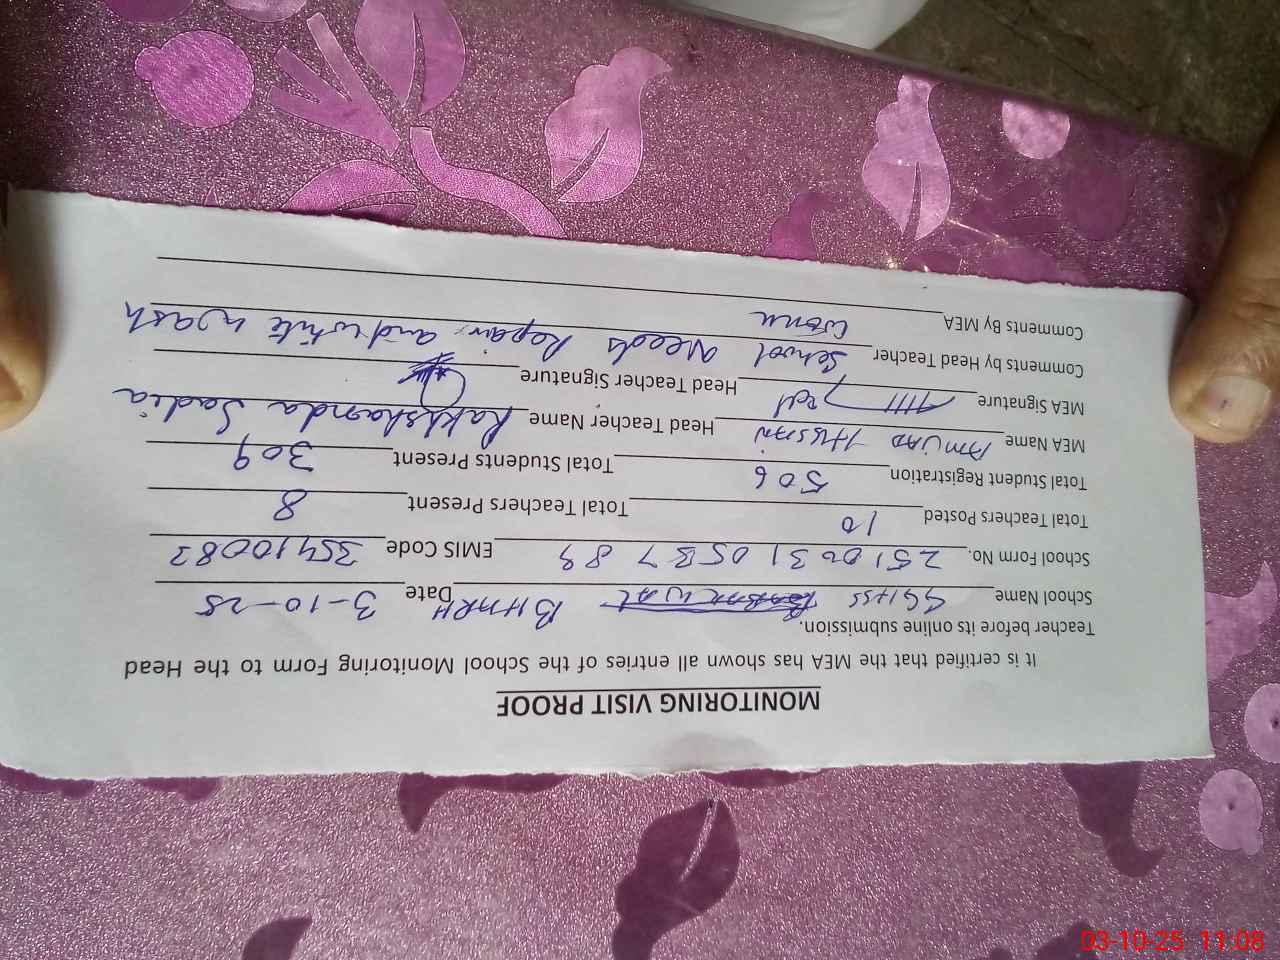 MONITORING VISIT PROOF
It is certified that the MEA has shown all entries of the School Monitoring Form to the Head
Teacher before its online submission.
School Name GGHSS BHMRH Date 3-10-25
School Form No. EMIS Code 35410082
Total Teachers Posted 10 Total Teachers Present 8
Total Student Registration 506 Total Students Present 309
MEA Name AMJAD HUSSAIN Head Teacher Name Rakhshanda Sadia
MEA Signature Head Teacher Signature
Comments by Head Teacher School needs Repair and white wash
Comments By MEA
03-10-25 11:08